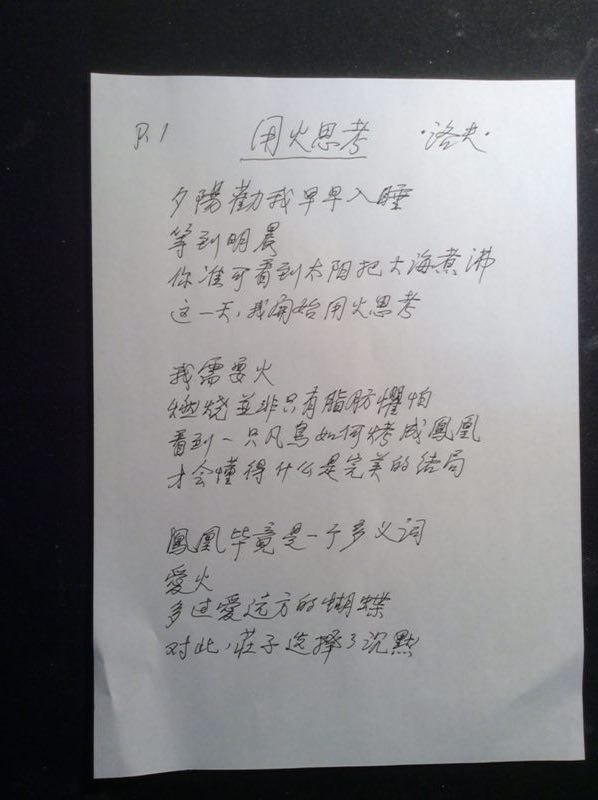 P.1 用火思考 ·洛夫·
夕陽勸我早早入睡
等到明晨
你准可看到太阳把大海煮沸
这一天，我開始用火思考
我需要火
燃烧並非只有脂肪懼怕
看到一只凡鸟如何烤成鳳凰
才会懂得什么是完美的结局
鳳凰毕竟是一个多义词
愛火
多过爱远方的蝴蝶
对此，莊子选擇了沉默